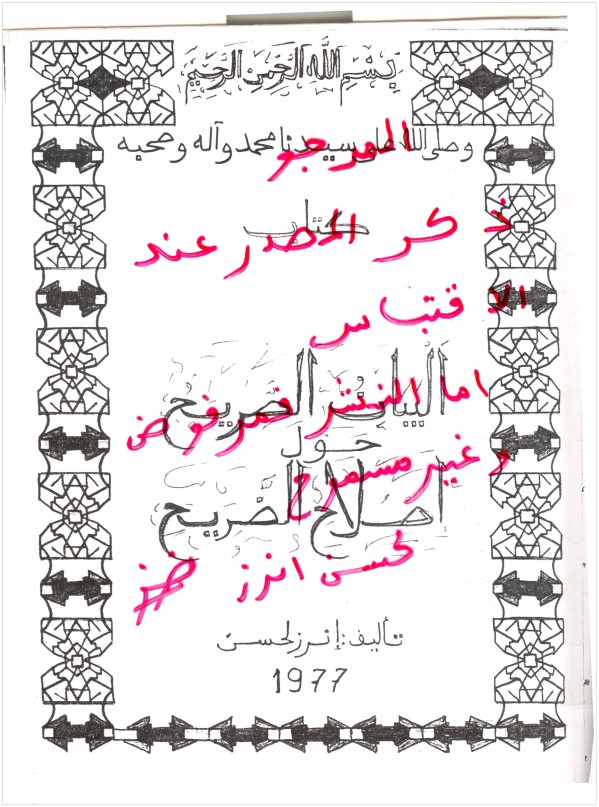 بسم الله الرحمن الرحيم
وصلى الله على سيدنا محمد وآله وصحبه
المرجو
كتاب
ذكر المصدر عند
الاقتباس
البيان الصريح
اما النشر فمرفوض
حول
وغير مسموح
إصلاح الضريح
لحسن انرز
تأليف: إنرز لحسن
1977